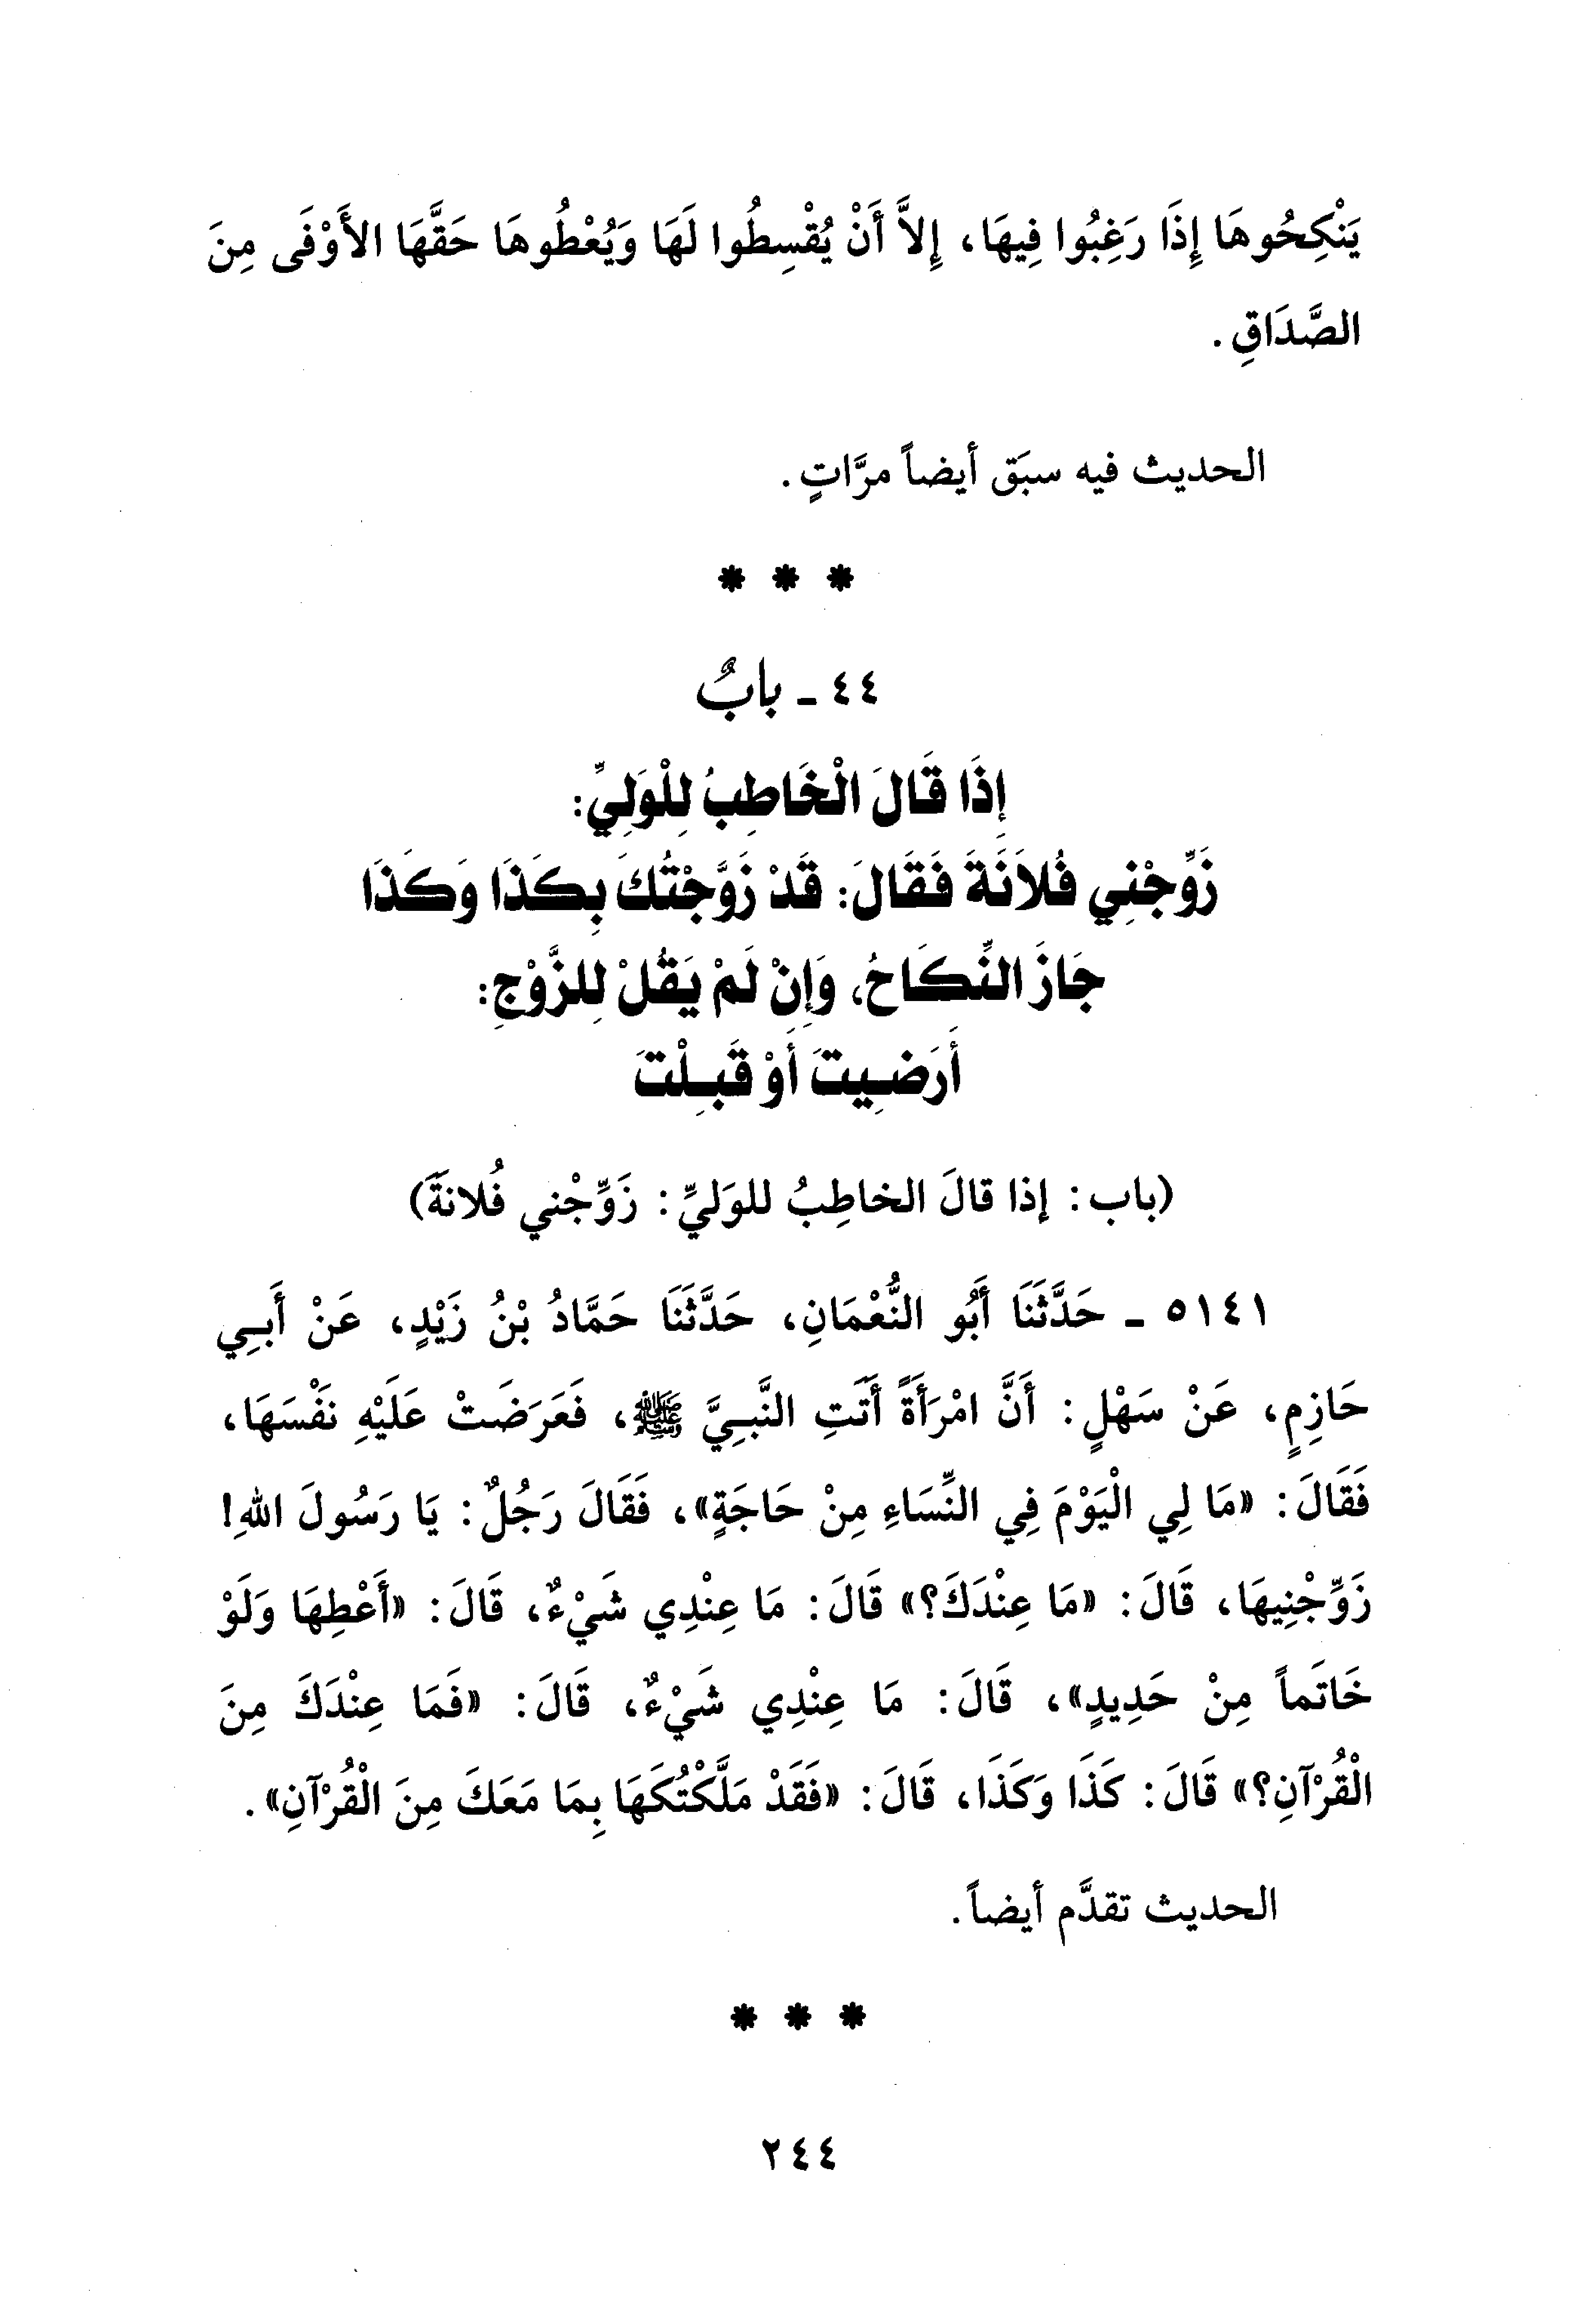 يَنْكِحُوهَا إِذَا رَغِبُوا فِيهَا، إِلاَّ أَنْ يُقْسِطُوا لَهَا وَيُعْطُوهَا حَقَّهَا الأَوْفَى مِنَ
الصَّدَاقِ.
الحديث فيه سبَق أيضاً مرَّاتٍ.
* * *
٤٤ - بابٌ
إِذَا قَالَ الْخَاطِبُ لِلْوَلِيِّ:
زَوِّجْنِي فُلاَنَةَ فَقَالَ: قَدْ زَوَّجْتُكَ بِكَذَا وَكَذَا
جَازَ النِّكَاحُ، وَإِنْ لَمْ يَقُلْ لِلزَّوْجِ:
أَرَضِيتَ أَوْ قَبِلْتَ
(باب: إذا قالَ الخاطِبُ للوَليِّ: زَوِّجْني فُلانةَ)
٥١٤١ - حَدَّثَنَا أَبُو النُّعْمَانِ، حَدَّثَنَا حَمَّادُ بْنُ زَيْدٍ، عَنْ أَبِي
حَازِمٍ، عَنْ سَهْلٍ: أَنَّ امْرَأَةً أَتَتِ النَّبِيَّ ﷺ، فَعَرَضَتْ عَلَيْهِ نَفْسَهَا،
فَقَالَ: «مَا لِي الْيَوْمَ فِي النِّسَاءِ مِنْ حَاجَةٍ»، فَقَالَ رَجُلٌ: يَا رَسُولَ اللهِ!
زَوِّجْنِيهَا، قَالَ: «مَا عِنْدَكَ؟» قَالَ: مَا عِنْدِي شَيْءٌ، قَالَ: «أَعْطِهَا وَلَوْ
خَاتَماً مِنْ حَدِيدٍ»، قَالَ: مَا عِنْدِي شَيْءٌ، قَالَ: «فَمَا عِنْدَكَ مِنَ
الْقُرْآنِ؟» قَالَ: كَذَا وَكَذَا، قَالَ: «فَقَدْ مَلَّكْتُكَهَا بِمَا مَعَكَ مِنَ الْقُرْآنِ».
الحديث تقدَّم أيضاً.
* * *
٢٤٤